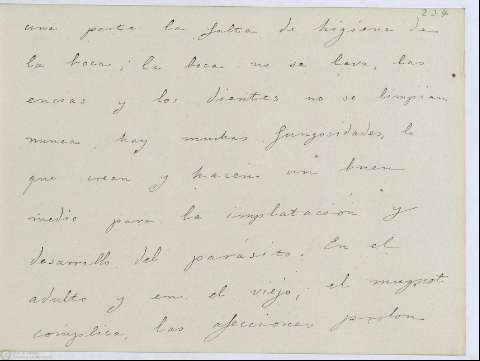 234
una parte la falta de higiene de
la boca; la boca no se lava, las
encias y los dientes no se limpian
nunca, hay muchas fungosidades, lo
que crean y hacen un buen
medio para la implatación y
desarrollo del parásito. En el
adulto y en el viejo, el muguet
complica, las afecciones prolon